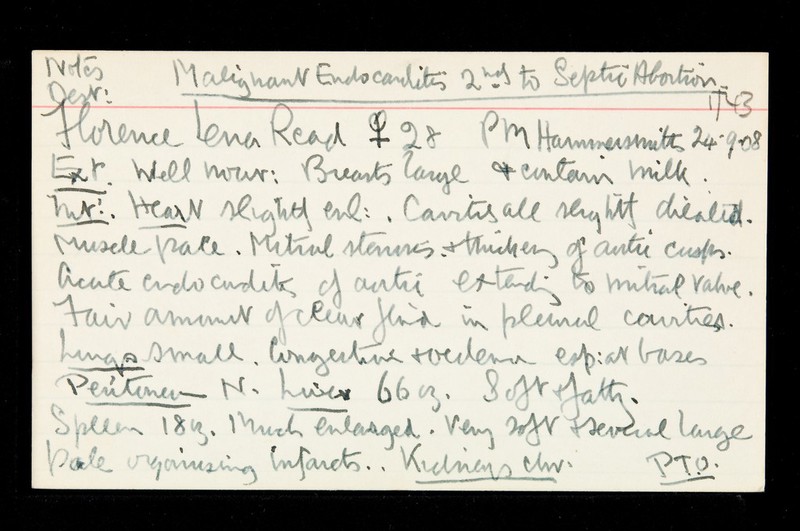 Notes
Dest:
Malignant Endocarditis 2nd to Septic Abortion
1743
Florence Lena Read ♀ 28 PM Hammersmith 24-9-08
Ext. Well nour: Breasts large & contain milk.
Int: Heart slightly enl: . Cavities all slightly dilated.
Muscle pale. Mitral stenosis. & thickeng of aortic cusps.
Acute endocarditis of aortic extending to mitral valve.
Fair amount of clear fluid in pleural cavities.
Lungs small. Congestive & oedema esp: at bases
Peritoneum N. Liver 66 oz. Soft & fatty.
Spleen 18 oz. Much enlarged. Very soft & several large
pale organising infarcts.. Kidneys chr: P.T.O.